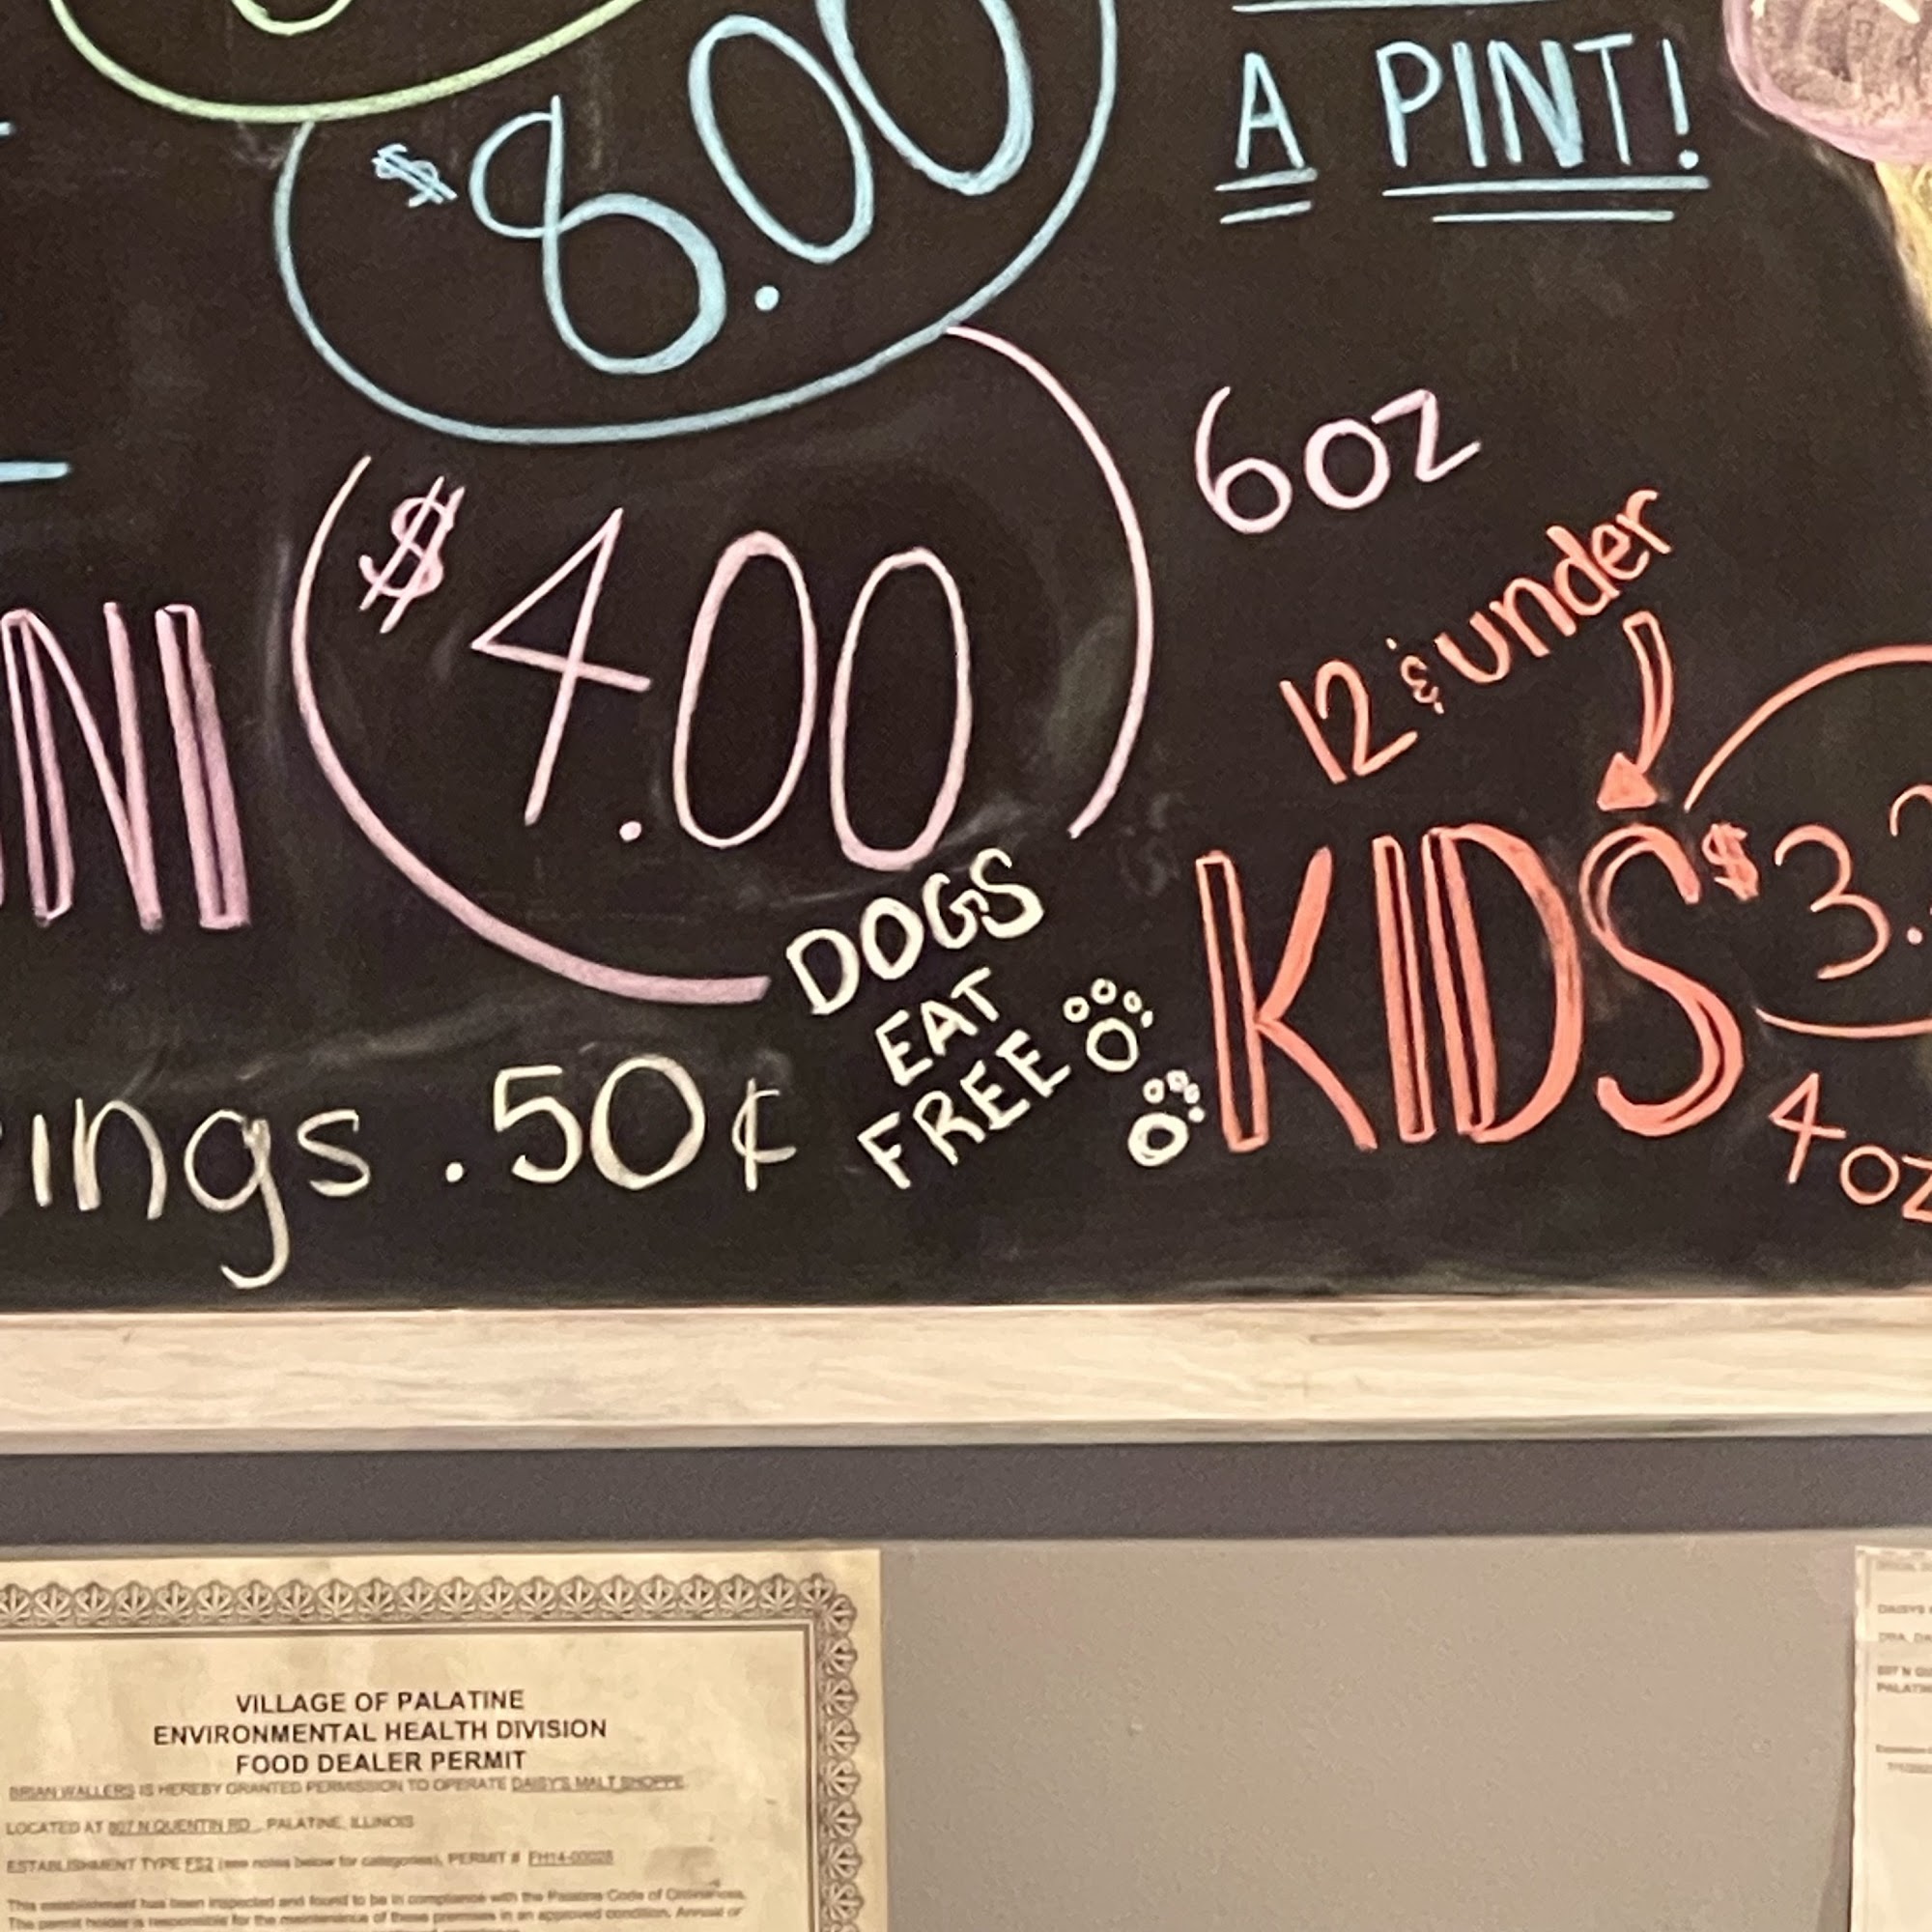 $8.00
A PINT!
6oz
$4.00
12 & under
KIDS
$3.
4oz
DOGS
EAT
FREE
.50¢
VILLAGE OF PALATINE
ENVIRONMENTAL HEALTH DIVISION
FOOD DEALER PERMIT
BRIAN WALLERS IS HEREBY GRANTED PERMISSION TO OPERATE DAISY'S MALT SHOPPE
LOCATED AT 807 N QUENTIN RD , PALATINE, ILLINOIS
ESTABLISHMENT TYPE FS2 (see notes below for categories), PERMIT # FH14-00028
This establishment has been inspected and found to be in compliance with the Palatine Code of Ordinances.
The permit holder is responsible for the maintenance of these premises in an approved condition. Annual or